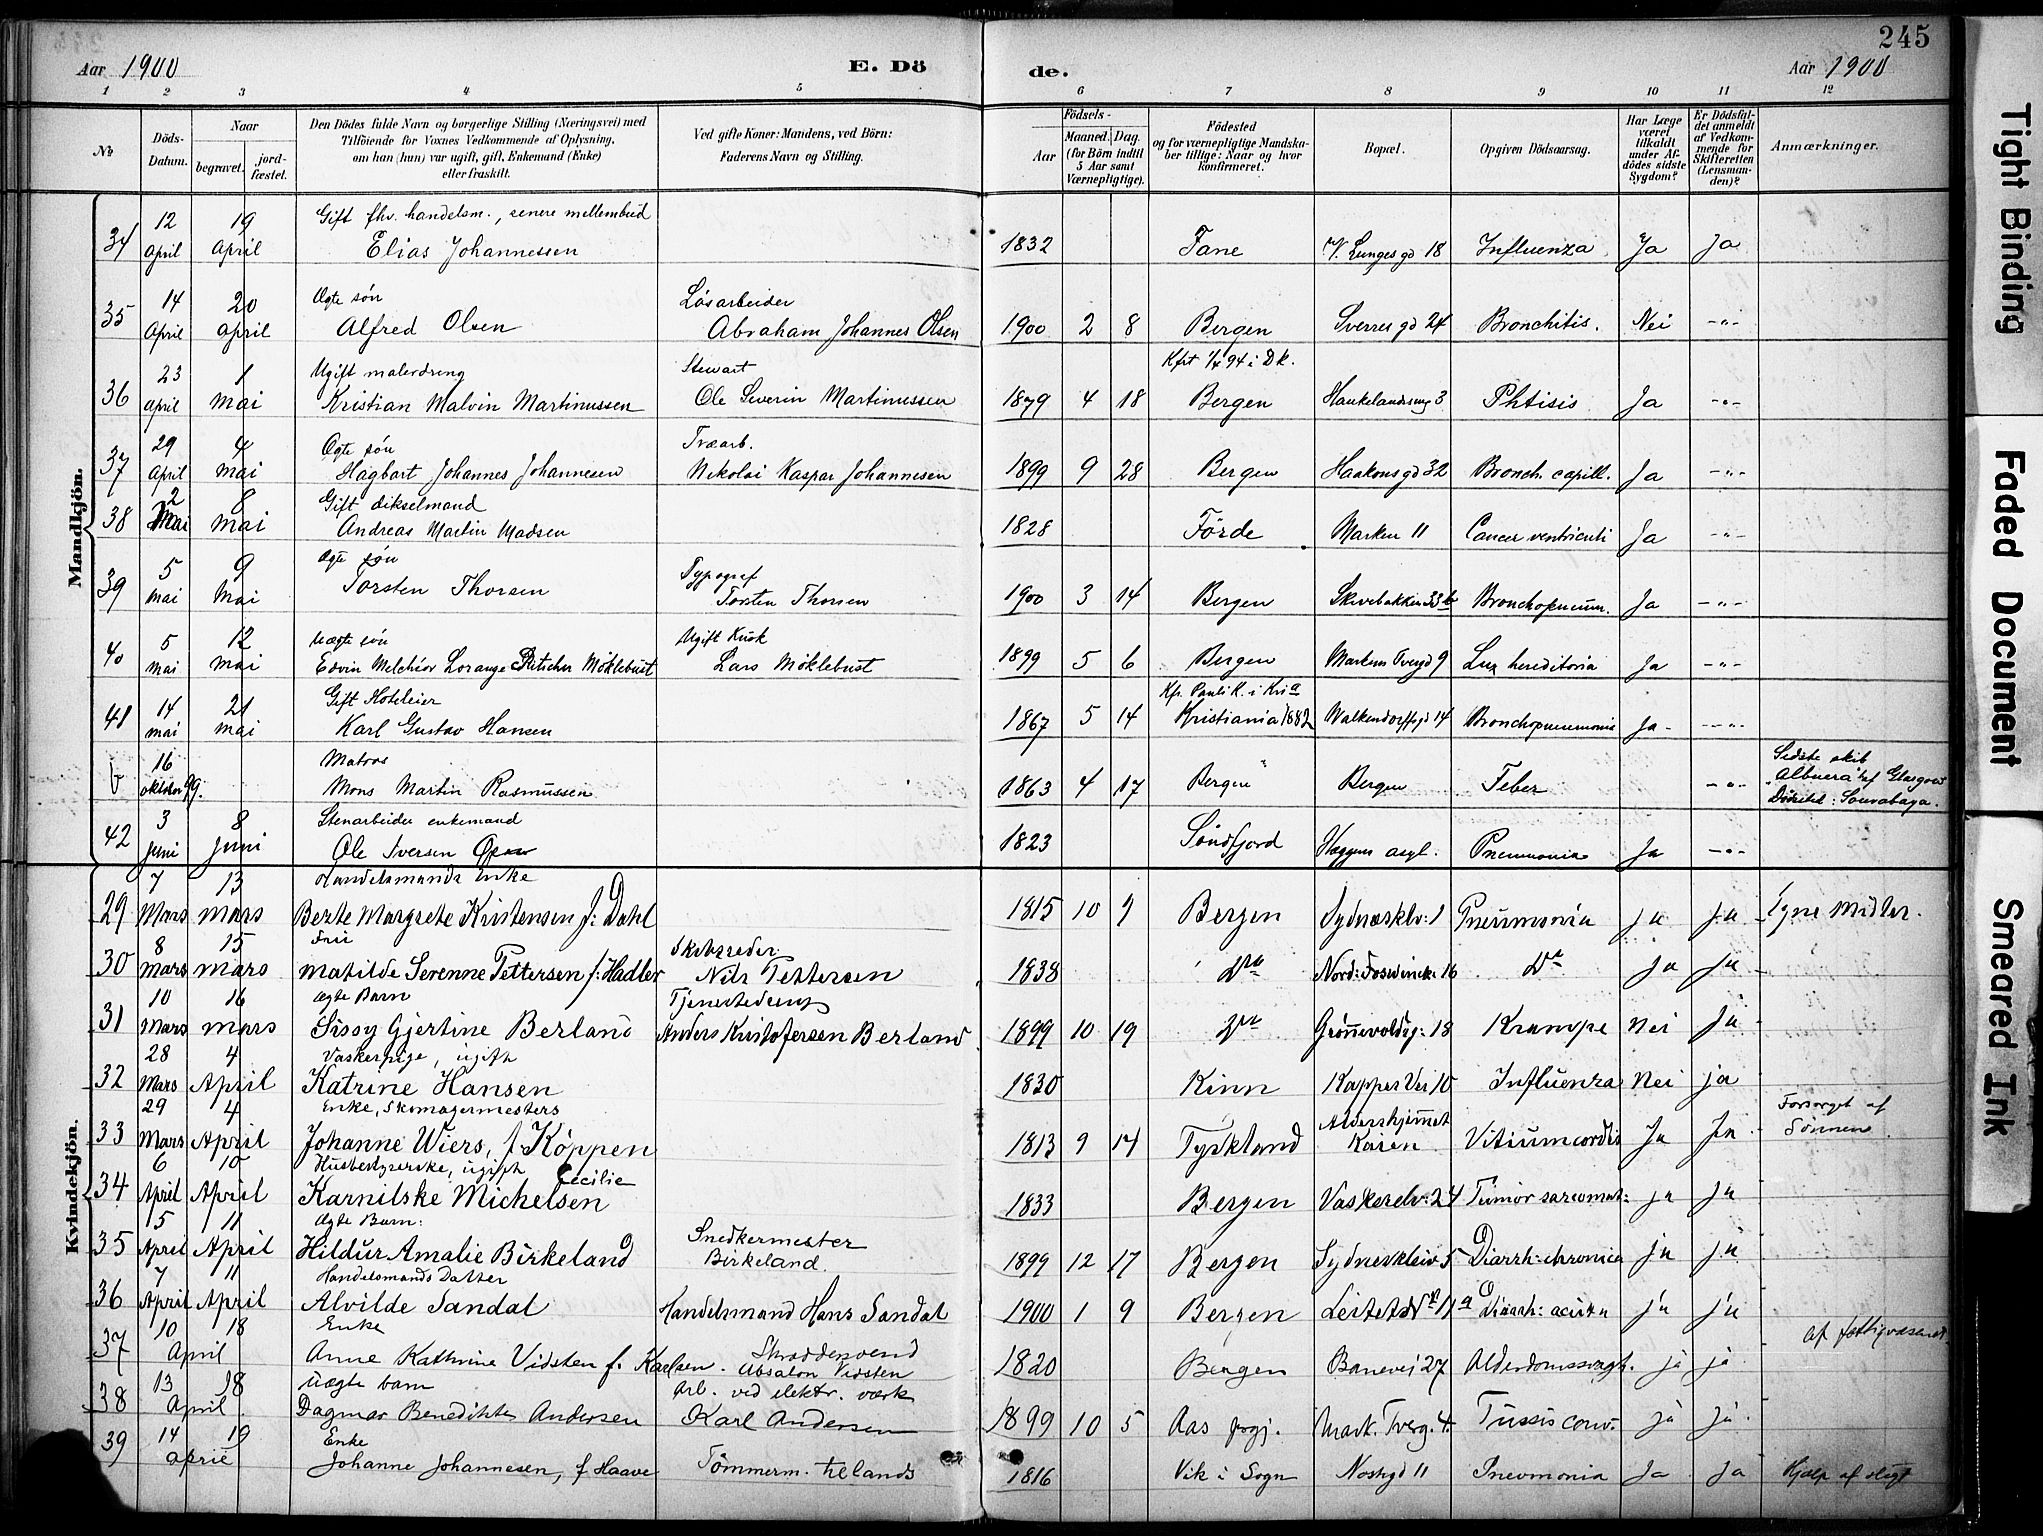 245
Aar 1900 E. Dö de. Aar 1900
1 2 3 4 5 6 7 8 9 10 11 12
No
Döds-Datum.
Naar
begravet. jordfæstet.
Den Dödes fulde Navn og borgerlige Stilling (Næringsvei) med
Tilföiende for Voxnes Vedkommende af Oplysning,
om han (hun) var ugift, gift, Enkemand (Enke)
eller fraskilt.
Ved gifte Koner: Mandens, ved Börn:
Faderens Navn og Stilling.
Födsels-
Aar
Maaned. Dag.
(for Börn indtil
5 Aar samt
Værnepligtige).
Födested
og for værnepligtige Mandska-
ber tillige: Naar og hvor
konfirmeret.
Bopæl.
Opgiven Dödsaarsag.
Har Læge
været
tilkaldt
under Af-
dödes sidste
Sygdom?
Er Dödsfal-
det anmeldt
af Vedkom-
mende for
Skifteretten
(Lensman-
den)?
Anmærkninger.
Mandkjön.
12 19 Gift fhv. handelsm., senere mellembud
34 April April Elias Johannessen 1832 Fane V. Lunges gd 18 Influenza Ja Ja
14 20 Ægte søn Løsarbeider
35 April April Alfred Olsen Abraham Johannes Olsen 1900 2 8 Bergen Sverres gd 24 Bronchitis. Nei -"-
23 1 Ugift malerdreng Stewart Kfrt 94 i Dk.
36 April Mai Kristian Malvin Martinussen Ole Severin Martinussen 1879 4 18 Bergen Haukelandsveg 3 Phtisis Ja -"-
29 4 Ægte søn Træarb.
37 April Mai Hagbart Johannes Johannesen Nikolai Kaspar Johannesen 1899 9 28 Bergen Haakonsgd 32 Bronch. capill. Ja -"-
2 8 Gift dikselmand
38 Mai Mai Andreas Martin Madsen 1828 Förde Marken 11 Cancer ventriculi Ja -"-
5 9 Ægte søn Typograf
39 Mai Mai Torsten Thorsen Torsten Thorsen 1900 3 14 Bergen Skivebakken 33 b Bronchopneum. Ja -"-
5 12 Uægte søn Ugift Kusk
40 Mai Mai Edvin Melchior Lorange Møklebust Lars Møklebust 1899 5 6 Bergen Markens Tvergd 9 Lux hereditoria Ja -"-
14 21 Gift Hoteleier Kfr. Pauli K. i Kria
41 Mai Mai Karl Gustav Hansen 1867 5 14 Kristiania 1882 Walkendorffsgd 14 Bronchopneumonia Ja -"-
16 Matros Sidste skib
oktober 99. Mons Martin Rasmussen 1863 4 17 Bergen Bergen Feber -"- "Albuera" af Glasgow
Dödsted: Sourabaya.
3 8 Stenarbeider enkemand
42 Juni Juni Ole Iversen 1823 Söndfjord Haggens asyl. Pneumonia Ja -"-
Kvindekjön.
7 13 Handelsmands Enke
29 Mars Mars Berte Margrete Kristensen f: Dahl 1815 10 9 Bergen Sydnæsklv: 1 Pneumonia ja ja Egne Midler.
8 15 Frue Skibsreder
30 Mars Mars Matilde Serenne Pettersen f: Hadler Nils Pettersen 1838 Do Nord: Foswinck. 16 Do Ja Ja
10 16 Ægte Barn Tjenestedreng
31 Mars Mars Sissy Gjertine Berland Anders Kristofersen Berland 1899 10 19 Do Grönnevoldsg: 18 Krampe Nei Ja
28 4 Vaskerpige, ugift
32 Mars April Katrine Hansen 1830 Kinn Kappes Vei 10 Influenza Nei ja
29 4 Enke, Skomagermesters Aldershjemmet Forsörget af
33 Mars April Johanne Wiers, f Köppen 1813 9 14 Tyskland Kaien Vitium cordis Ja Ja Sönnen
6 10 Husbestyrerske, ugift Cecilie
34 April April Karnilske Michelsen 1833 Bergen Vaskerelv: 24 Tumor sarcomat: ja ja
5 11 Ægte Barn: Snedkermester
35 April April Hildur Amalie Birkeland Birkeland. 1899 12 17 Bergen Sydneskleiv 5 Diarrh: chronica ja ja
7 11 Handelsmands Datter
36 April April Alvilde Sandal Handelsmand Hans Sandal 1900 1 9 Bergen Leitet No 11 a Diarrh: acuta ja ja
10 18 Enke Skræddersvend af fattigvæsenet
37 April Anne Kathrine Vidsten f. Karlsen. Absalon Vidsten 1820 Bergen Banevei 27 Alderdomssvagh. ja ja
13 18 Uægte barn Arb. ved elektr. værk
38 April Dagmar Benedikte Andersen Karl Andersen 1899 10 5 Aas prgj. Mark. Tverg. 4. Tussis conv. ja ja
14 19 Enke
39 April Johanne Johannesen, f Haave Tömmerm. tillands 1816 Vik i Sogn Nostegd 11 Pneumonia Ja Ja Hjælp af slægt
Tight Binding
Faded Document
Smeared Ink